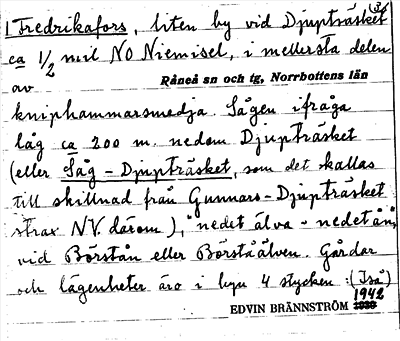 1 Fredrikafors, liten by vid Djupträsket
ca 1/2 mil NO Niemisel, i mellersta delen
av Råneå sn och tg, Norrbottens län
kniphammarsmedja. Sågen ifråga
låg ca 200 m. nedom Djupträsket
(eller Såg-Djupträsket, som det kallas
till skillnad från Gunnars-Djupträsket
strax NV. därom), "nedet älva - nedet ån",
vid Börstån eller Börstaälven. Gårdar
och lägenheter äro i byn 4 stycken:
1942
EDVIN BRÄNNSTRÖM